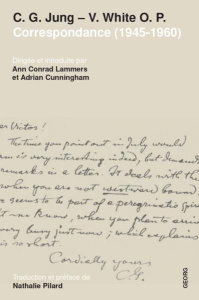 C. G. Jung – V. White O. P.
Correspondance (1945-1960)
Dirigée et introduite par
Ann Conrad Lammers
et Adrian Cunningham
ear Victor!
The time you point out in July would
en is very interesting indeed, but
remarks in a letter. It deals with th
when you are not westward bound.
seems to be part of a peregrinatio
when you plan to arriv
very busy just now; which explains
is so short.
Cordially yours
C.G.
Traduction et préface de
Nathalie Pilard
GEORG